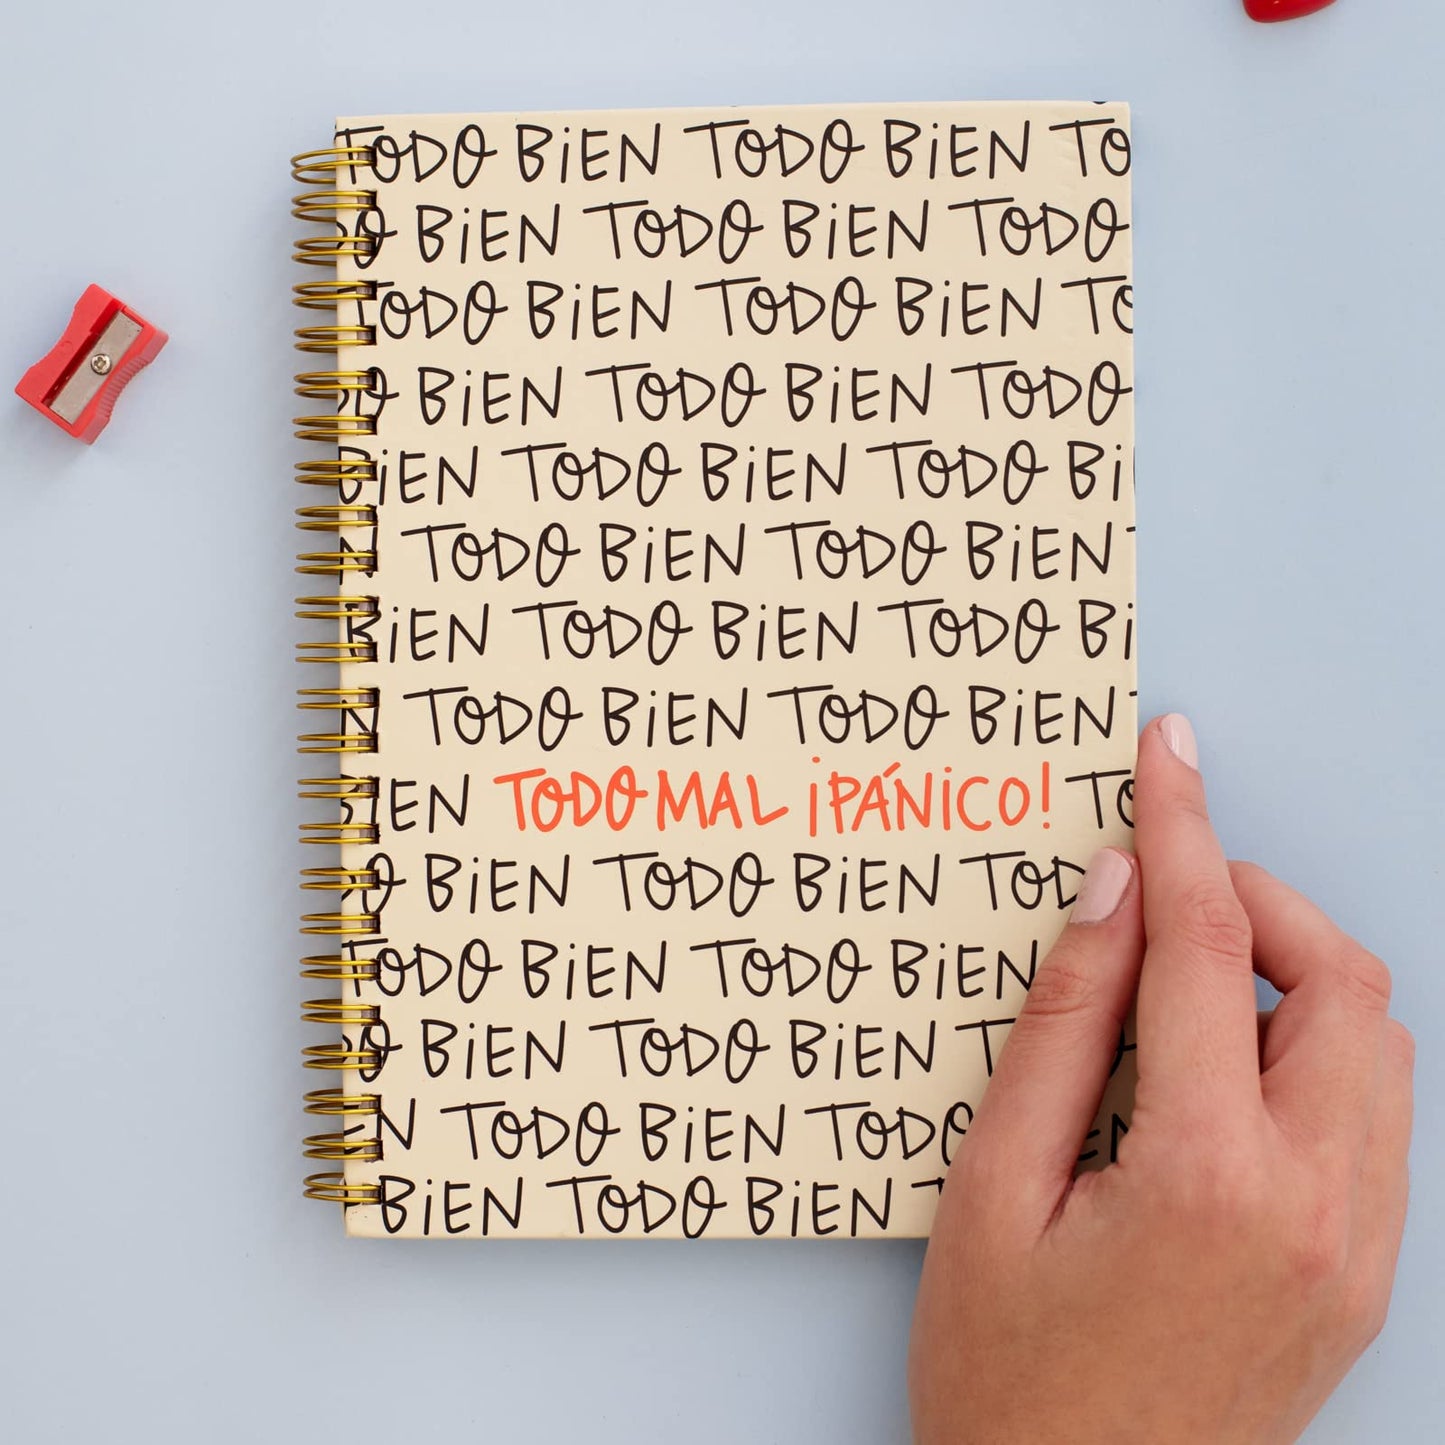 TODO BiEN TODO BiEN TO
DO BiEN TODO BiEN TODO
TODO BiEN TODO BiEN TO
DO BiEN TODO BiEN TODO
BiEN TODO BiEN TODO Bi
N TODO BiEN TODO BiEN
BiEN TODO BiEN TODO Bi
N TODO BiEN TODO BiEN
BIEN TODO MAL ¡PÁNiCO! TO
DO BiEN TODO BiEN TOD
TODO BiEN TODO BiEN
DO BiEN TODO BiEN T
EN TODO BiEN TODO EN
BiEN TODO BiEN